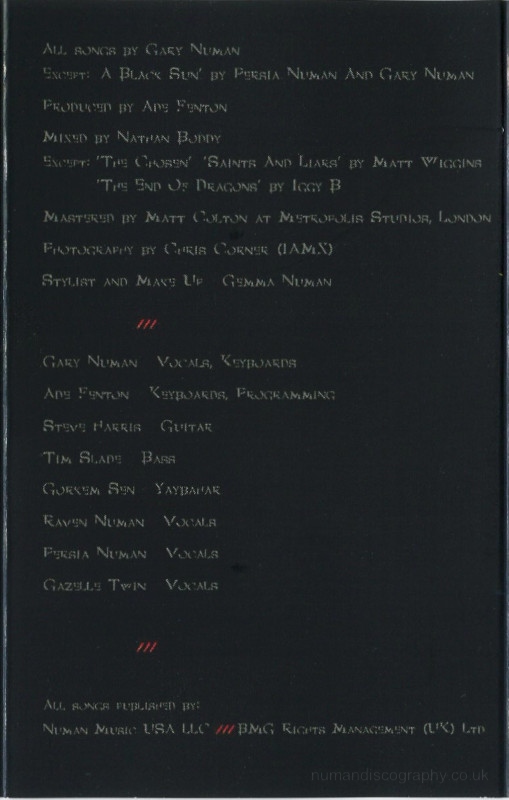 All songs by Gary Numan
Except: 'A Black Sun' by Persia Numan And Gary Numan
Produced by Ade Fenton
Mixed by Nathan Boddy
Except: 'The Chosen' 'Saints And Liars' by Matt Wiggins
'The End Of Dragons' by Iggy B
Mastered by Matt Colton at Metropolis Studios, London
Photography by Chris Corner (IAMX)
Stylist and Make Up Gemma Numan
///
Gary Numan Vocals, Keyboards
Ade Fenton Keyboards, Programming
Steve Harris Guitar
Tim Slade Bass
Gorkem Sen Yaybahar
Raven Numan Vocals
Persia Numan Vocals
Gazelle Twin Vocals
///
All songs published by:
Numan Music USA LLC /// BMG Rights Management (UK) Ltd
numandiscography.co.uk